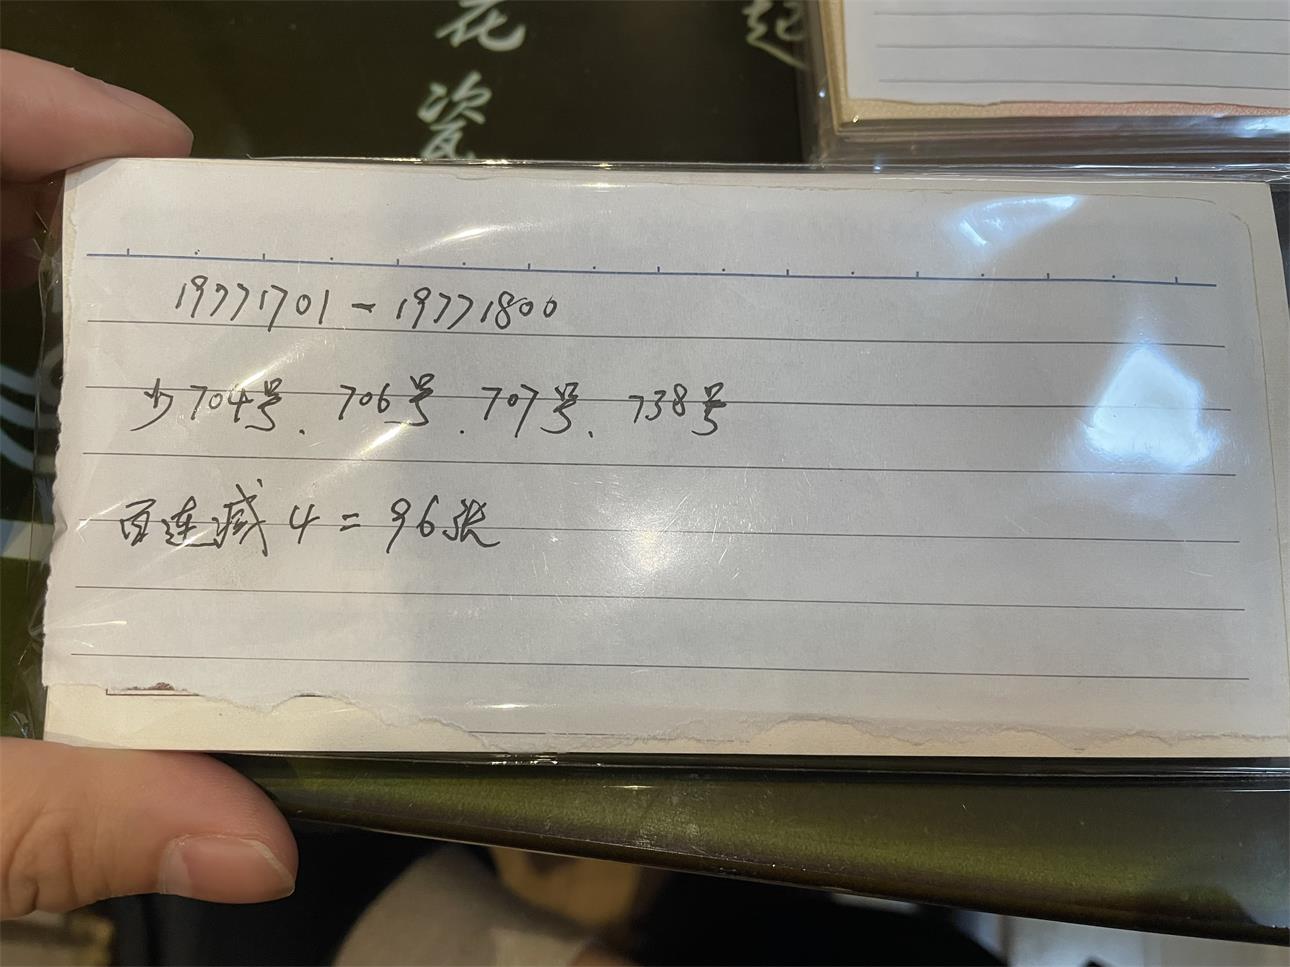 花瓷
起
19771701-19771800
少704号、706号、707号、738号
百连减4=96张